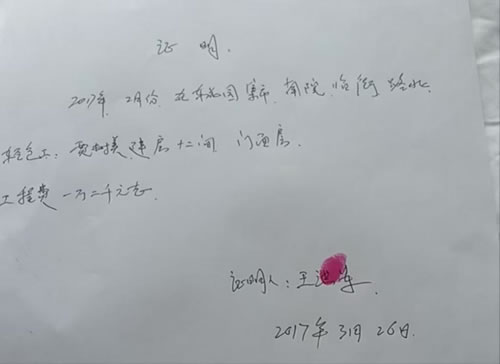 证明.
2017年 2月份, 在 集市, 南院, 临街 路北,
轻包工: 贾 建房十二间 门面房.
工程费一万二千元
证明人: 王 海
2017年3月26日.